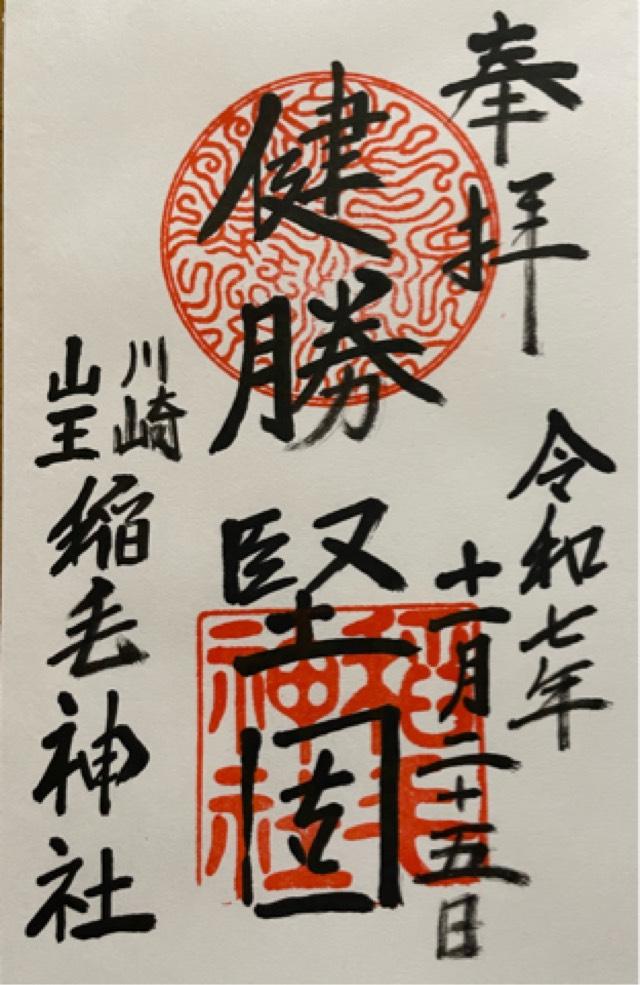 奉拝
令和七年
十一月二十五日
健勝
堅固
川崎
山王
稲毛神社
稲毛
神社